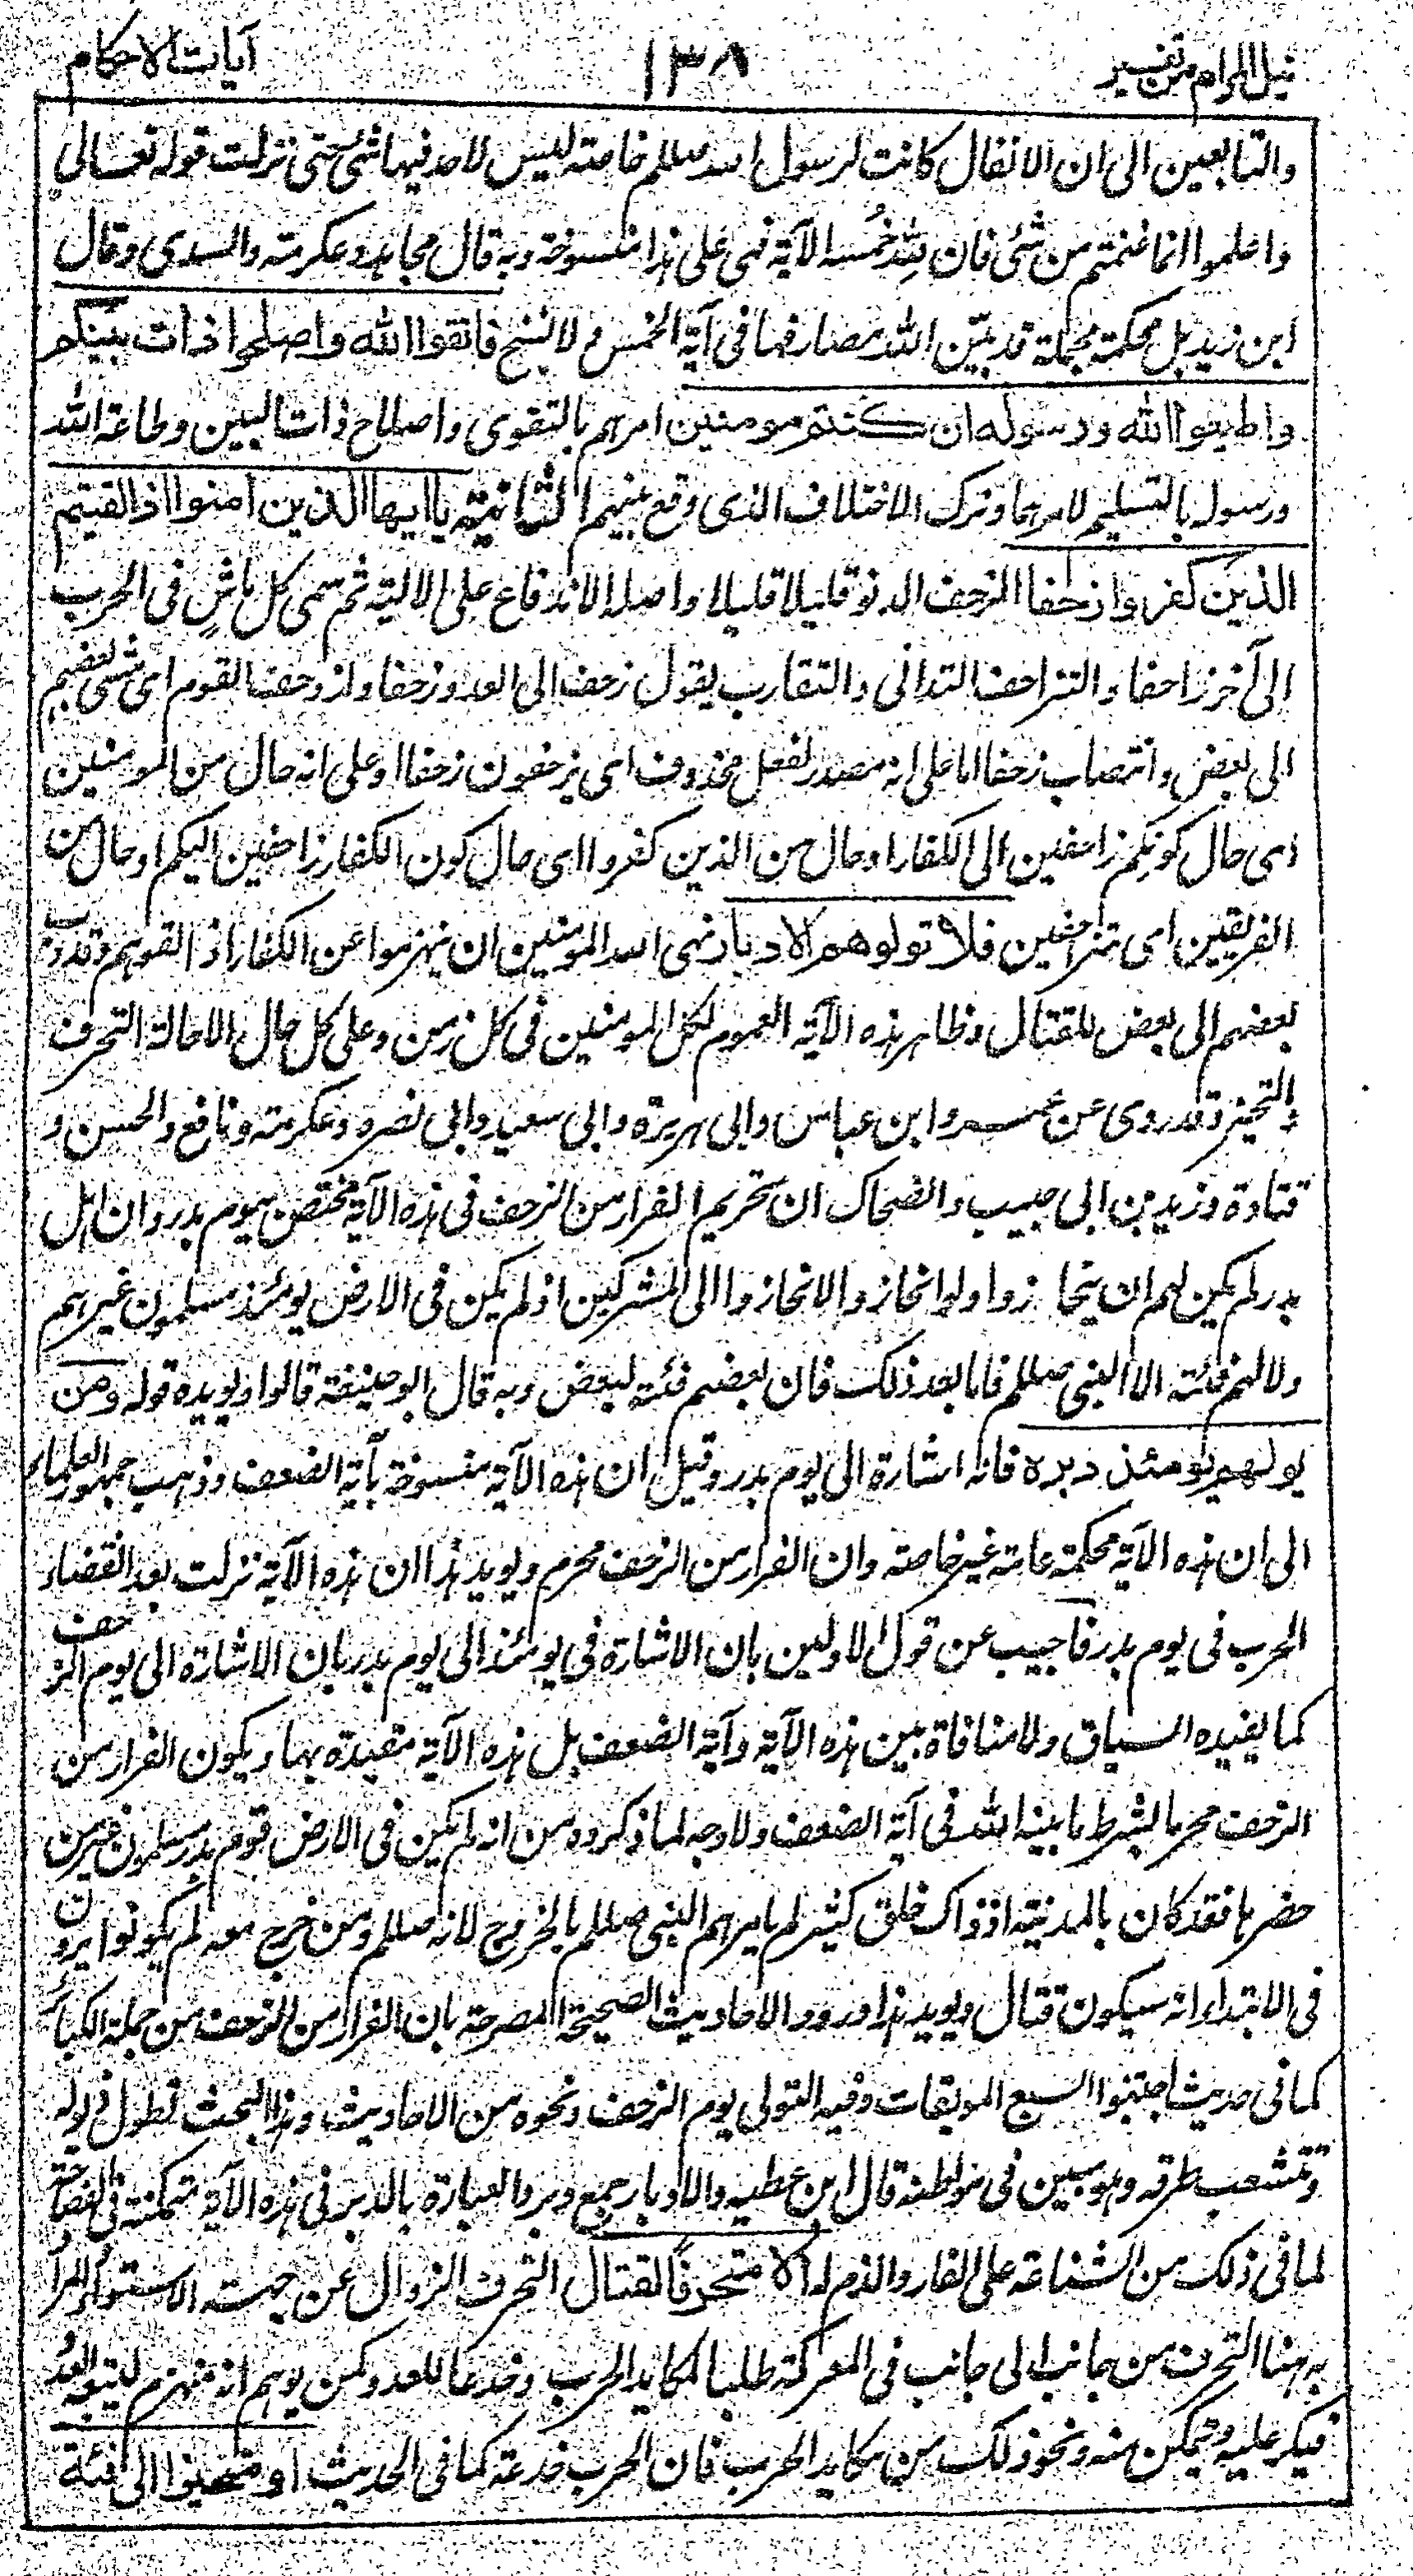 نيل المرام من تفسير ١٣٨ آيات الاحكام
والتابعين الى ان الانفال كانت لرسول الله صللم خاصة ليس لاحد فيها شئ حتى نزلت قوله تعالى
واعلموا انما غنمتم من شئ فان لله خُمسه الآية فهى على هذا منسوخة وبه قال مجاهد وعكرمة والسدى وقال
ابن زيد بل محكمة مجملة قد بيّن الله مصارفها فى آية الخمس ولا نسخ فاتقوا الله واصلحوا ذات بينكم
واطيعوا الله ورسوله ان كنتم مومنين امرهم بالتقوى واصلاح ذات البين وطاعة الله
ورسوله بالتسليم لامرهما وترك الاختلاف الذى وقع بينهم الثانية يا ايها الذين امنوا اذا لقيتم
الذين كفروا زحفا الزحف الدنو قليلا قليلا واصله الاندفاع على الالية ثم سمى كل ماشٍ فى الحرب
الى آخر زاحفا والتزاحف التدانى والتقارب يقول زحف الى العدو زحفا وازدحف القوم اى مشى بعضهم
الى بعض وانتصاب زحفا اما على انه مصدر لفعل محذوف اى يزحفون زحفا او على انه حال من المومنين
اى حال كونكم زاحفين الى الكفار او حال من الذين كفروا اى حال كون الكفار زاحفين اليكم او حال من
الفريقين اى متزاحفين فلا تولوهم الادبار نهى الله المومنين ان ينهزموا عن الكفار اذا لقوهم وقد دب
بعضهم الى بعض للقتال وظاهر هذه الآية العموم لكل المومنين فى كل زمن وعلى كل حال الا حالة التحرف
والتحيز وقد روى عن عمر وابن عباس وابى هريرة وابى سعيد وابى نضرة وعكرمة ونافع والحسن و
قتادة وزيد بن ابى حبيب والضحاك ان تحريم الفرار من الزحف فى هذه الآية مختص بيوم بدر وان اهل
بدر لم يكن لهم ان ينحازوا ولو انحازوا لانحازوا الى المشركين اذ لم يكن فى الارض يومئذ مسلمون غيرهم
ولا لهم فئة الا النبى صللم فاما بعد ذلك فان بعضهم فئة لبعض وبه قال ابو حنيفة قالوا ويويده قوله ومن
يولهم يومئذ دبره فانه اشارة الى يوم بدر وقيل ان هذه الآية منسوخة بآية الضعف وذهب جمهور العلماء
الى ان هذه الآية محكمة عامة غير خاصة وان الفرار من الزحف محرم ويويد هذا ان هذه الآية نزلت بعد انقضاء
الحرب فى يوم بدر فاجيب عن قول الاولين بان الاشارة فى يومئذ الى يوم بدر بان الاشارة الى يوم الزحف
كما يفيده السياق ولا منافاة بين هذه الآية وآية الضعف بل هذه الآية مقيدة بها ويكون الفرار من
الزحف محرما بشرط ما بينه الله فى آية الضعف ولا وجه لما ذكروه من انه لم يكن فى الارض قوم بدر مسلمون غير من
حضرها فقد كان بالمدينة اذ ذاك خلق كثير لم يامرهم النبى صللم بالخروج لانه صللم ومن خرج معه لم يكونوا يرون
فى الابتداء انه سيكون قتال ويويد هذا ورود الاحاديث الصحيحة المصرحة بان الفرار من الزحف من جملة الكبائر
كما فى حديث اجتنبوا السبع الموبقات وفيه التولى يوم الزحف ونحوه من الاحاديث وهذا البحث تطول ذيوله
وتتشعب طرقه وهو مبين فى مواطنه قال ابن عطية والادبار جمع دبر والعبارة بالدبر فى هذه الآية متمكنة فى الفصاحة
لما فى ذلك من الشناعة على الفار والذم له الا متحرفًا لقتال التحرف الزوال عن جهة الاستواء والمراد
به هنا التحرف من جانب الى جانب فى المعركة طلبا لمكايد الحرب وخدعا للعدو وكمن يوهم انه منهزم ليتبعه العدو
فيكر عليه ويتمكن منه ونحو ذلك من مكايد الحرب فان الحرب خدعة كما فى الحديث او متحيزا الى فئة